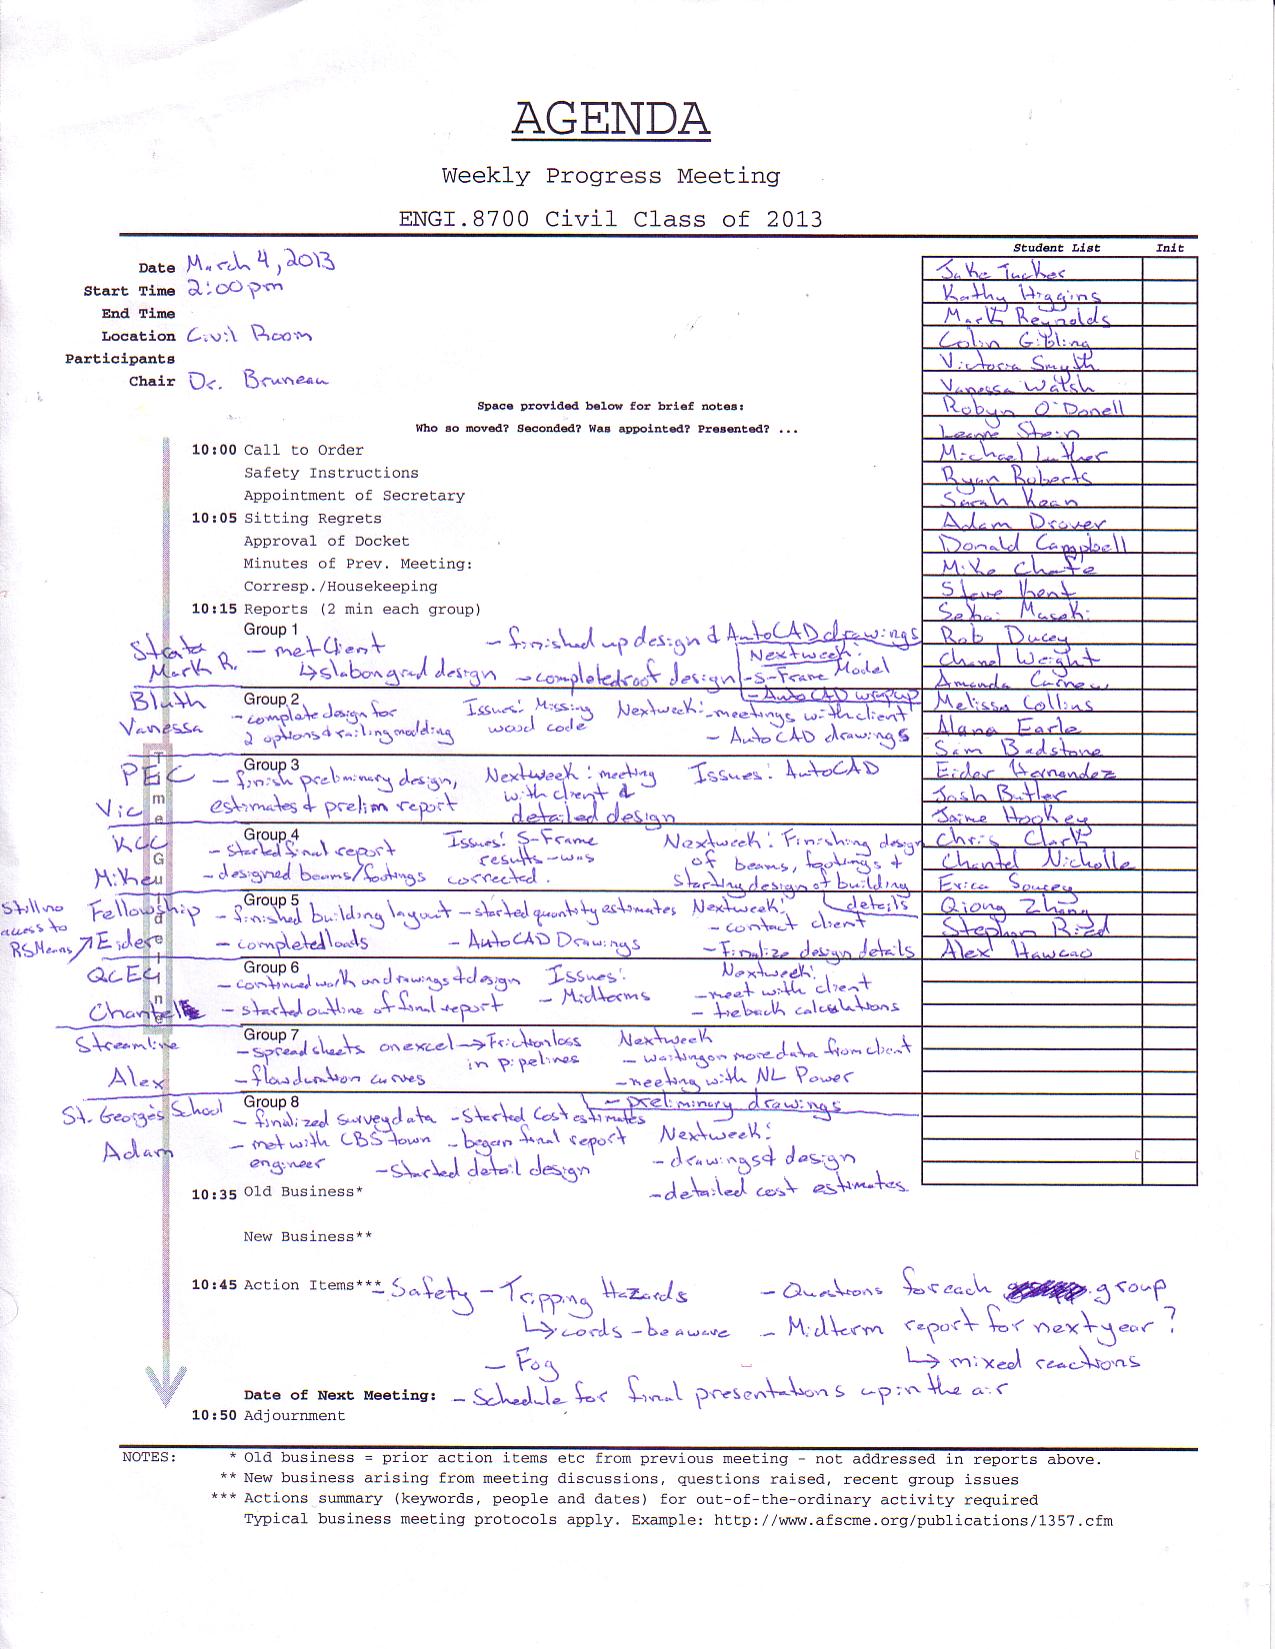 AGENDA
Weekly Progress Meeting
ENGI.8700 Civil Class of 2013
Student List Init
Date March 4, 2013
Start Time 2:00pm
End Time
Location Civil Room
Participants
Chair Dr. Bruneau
Jake Tucker
Kathy Higgins
Mark Reynolds
Colin Gibling
Victoria Smyth
Vanessa Walsh
Robyn O'Donell
Leanne Stein
Michael Luther
Ryan Roberts
Sarah Kean
Adam Drover
Donald Campbell
Mike Chafe
Steve Kent
Rob Ducey
Chanel Weight
Amanda
Melissa Collins
Alana Earle
Sam Badstone
Eider Hernandez
Josh Butler
Jaime Hookey
Chris Clark
Chantel Nicholle
Erica Soucey
Qiong Zhang
Stephen
Alex Hawcao
Space provided below for brief notes:
Who so moved? Seconded? Was appointed? Presented? ...
Time Guideline
10:00 Call to Order
Safety Instructions
Appointment of Secretary
10:05 Sitting Regrets
Approval of Docket
Minutes of Prev. Meeting:
Corresp./Housekeeping
10:15 Reports (2 min each group)
Group 1
Strata
Mark R.
- met Client
↳ slab on grad design
- finished up design & AutoCAD drawings
- completed roof design
Next week:
- S-Frame Model
- AutoCAD wrap up
Group 2
Bluth
Vanessa
- complete design for
2 options & railing molding
Issues: Missing
wood code
Next week: - meetings with client
- AutoCAD drawings
Group 3
PEC
Vic
- finish preliminary design,
estimates & prelim report
Next week: meeting
with client &
detailed design
Issues: AutoCAD
Group 4
KCC
Mike
- started final report
- designed beams/footings
Issues: S-Frame
results - was
corrected.
Next week: Finishing design
of beams, footings &
starting design of building
details
Group 5
Still no
access to
RSMeans ↗
Fellowship
Eider
- finished building layout - started quantity estimates
- completed loads - AutoCAD Drawings
Next week:
- contact client
- Finalize design details
Group 6
QCEC
Chantelle
- continued work on drawings & design
- started outline of final report
Issues:
- Midterms
Next week:
- meet with client
- tieback calculations
Group 7
Streamline
Alex
- spreadsheets on excel → Friction loss
in pipelines
- flow duration curves
Next week
- waiting on more data from client
- meeting with NL Power
- preliminary drawings
Group 8
St. George's School
Adam
- finalized survey data - Started Cost estimates
- met with CBS town
engineer
- began final report
- Started detail design
Next week:
- drawings & design
- detailed cost estimates
10:35 Old Business*
New Business**
10:45 Action Items*** - Safety - Tripping Hazards
↳ cords - be aware
- Fog
- Questions for each group
- Midterm report for next year?
↳ mixed reactions
Date of Next Meeting: - Schedule for final presentations up in the air
10:50 Adjournment
NOTES: * Old business = prior action items etc from previous meeting - not addressed in reports above.
** New business arising from meeting discussions, questions raised, recent group issues
*** Actions summary (keywords, people and dates) for out-of-the-ordinary activity required
Typical business meeting protocols apply. Example: http://www.afscme.org/publications/1357.cfm